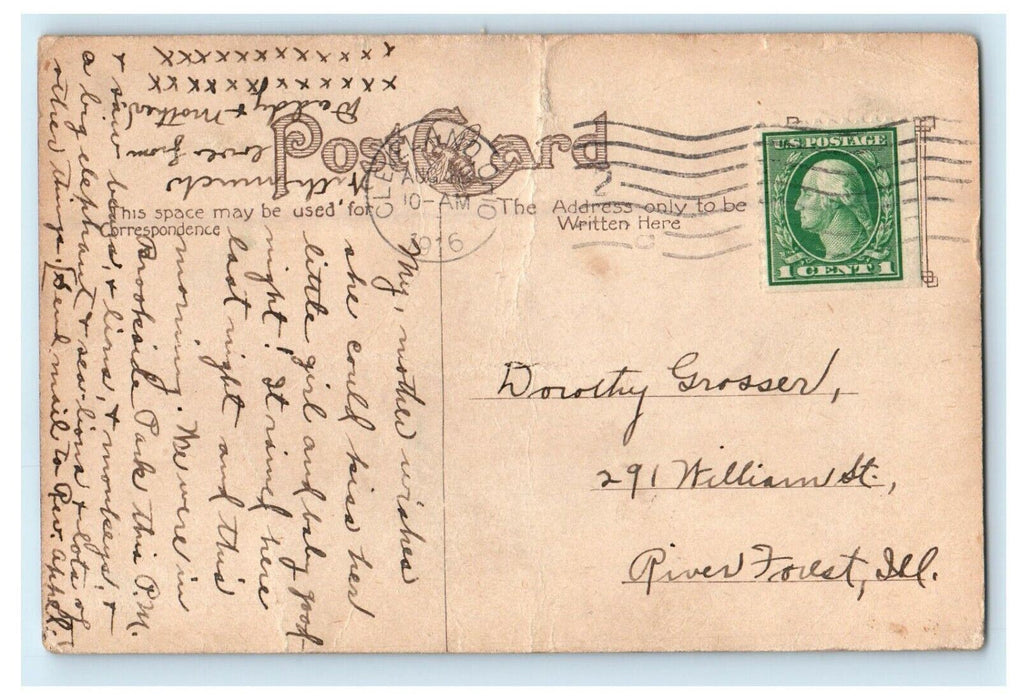 Post Card
This space may be used for
Correspondence
The Address only to be
Written Here
CLEVELAND, O
AUG
10-AM
1916
2
U.S. POSTAGE
1 CENT 1
Dorothy Grosser,
291 William St.,
River Forest, Ill.
My, mother wishes
she could kiss her
little girl and baby good
night! It rained here
last night and this
morning. We were in
Brookside Park this P.M.
& saw bears, & lions, & monkeys, &
a big elephant & sea-lions & lots of
other things. Send mail to Rev. Appel.
With much
love from
Daddy & Mother.
x x x x x x x x x x x
x x x x x x x x x x x x